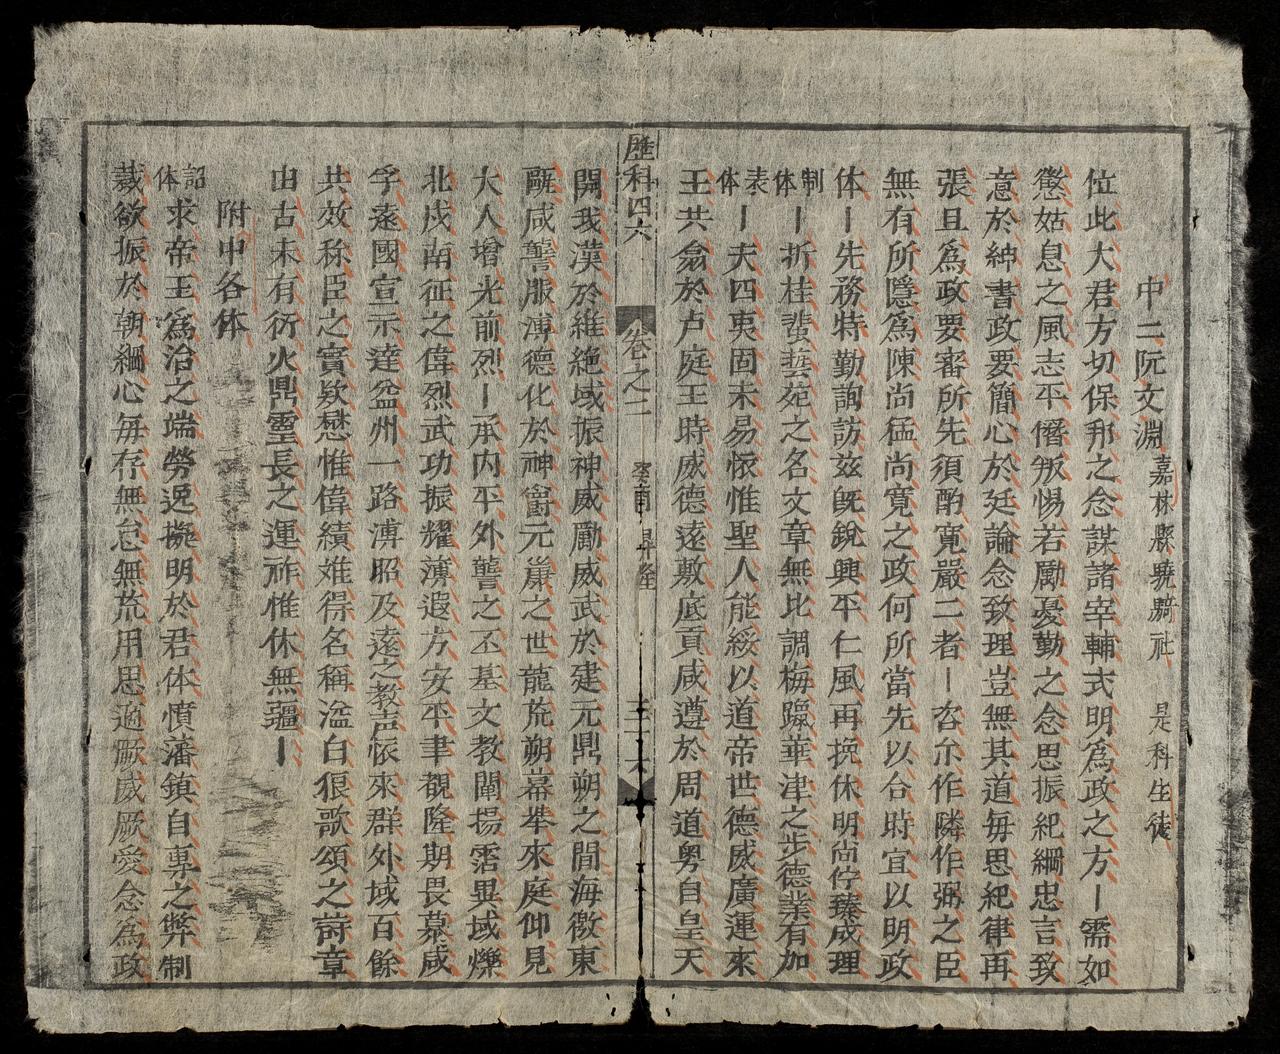 中二阮文淵 嘉林縣驍騎社 是科生徒
位此大君方切保邦之念謀諸宰輔式明為政之方一需如
懲姑息之風志平僭叛惕若勵憂勤之念思振紀綱忠言致
意於紳書政要簡心於廷論念致理豈無其道每思紀律再
張且為政要審所先須酌寬嚴二者一咨尔作隣作弼之臣
無有所隱為陳尚猛尚寬之政何所當先以合時宜以明政
体一先務特勤詢訪玆既銳興平仁風再挽休明尚佇臻成理
制体一折桂蜚藝苑之名文章無比調梅躡華津之步德業有加
表体一夫四夷固未易怀惟聖人能綏以道帝世德威廣運來
王共龛於卢庭王時威德遠敷底貢咸遵於周道粵自皇天
歷科四六 卷之二 癸酉 昇隆 三十六
開我漢於維絶域振神威勵威武於建元鼎朔之間海徼東
甌咸讋服溥德化於神爵元簫之世龍荒朔幕举來庭仰見
大人增光前烈一承内平外讋之丕基文教闡揚霑異域爍
北戍南征之偉烈武功振耀溥遐方安平聿覩隆期畏慕咸
孚遠國宣示達盆州一路溥昭及遠之教声怀來群外域百餘
共效称臣之實欵懋惟偉績难得名稱溢白狼歌頌之詩章
由古未有衍火鼎靈長之運祚惟休無疆一
附中各体
詔体求帝王為治之端勞逸擬明於君体憤潘鎮自專之弊制
裁欲振於朝綱心每存無怠無荒用思適厥威厥愛念為政